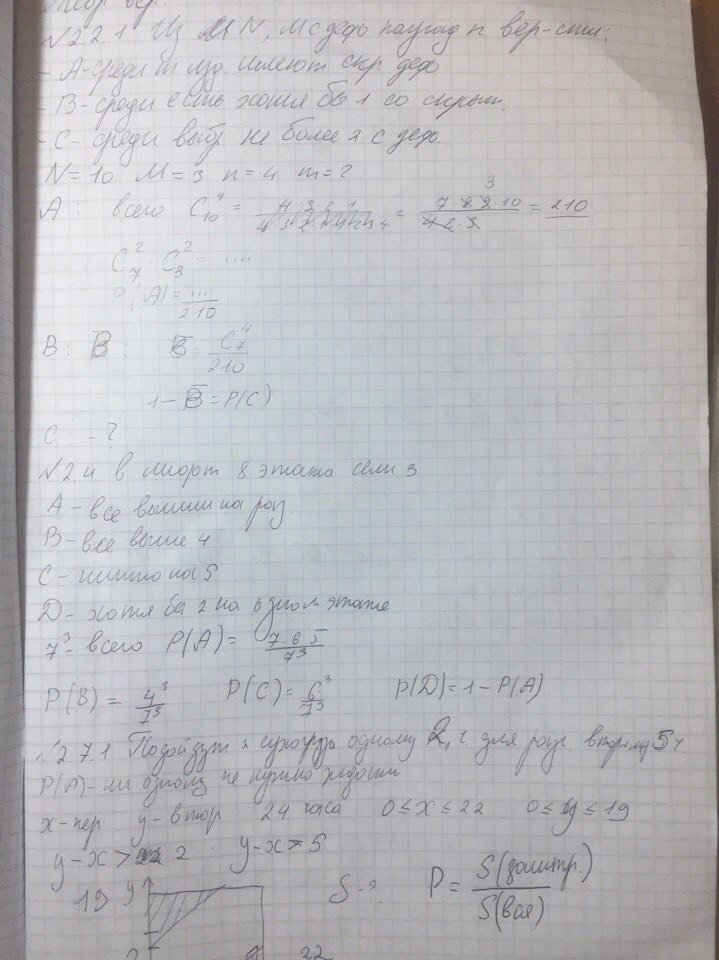 №2.2.1 Из N, M с деф наугад n вер-сти:
- A - среди m изд. имеют скр. деф
- B - среди есть хотя бы 1 со скрыт.
- C - среди выбр не более с деф.
N = 10 M = 3 n = 4 m = 2
A: всего C₁₀⁴ = = 7·8·9·10 / 4·2·3 = 210
C₇² · C₃² = ....
P(A) = ... / 210
B: B̅: B̅ = C₇⁴ / 210
1 - B̅ = P(C)
C: - ?
№2.4 в лифт 8 этажо сели 3
A - все вышли на раз
B - все выше 4
C - никто на 5
D - хотя бы 2 на одном этаже
7³ - всего P(A) = 7·6·5 / 7³
P(B) = 4³ / 7³ P(C) = 6³ / 7³ P(D) = 1 - P(A)
№2.7.1 Подойдут 2 сухогруз одному 2 ч для разг второму 5 ч
P(A) - ни одному не нужно ждать
x - пер y - втор 24 часа 0 ≤ x ≤ 22 0 ≤ y ≤ 19
y - x > 2 y - x > 5
19 y S - ? P = S(заштр.) / S(вся)
22